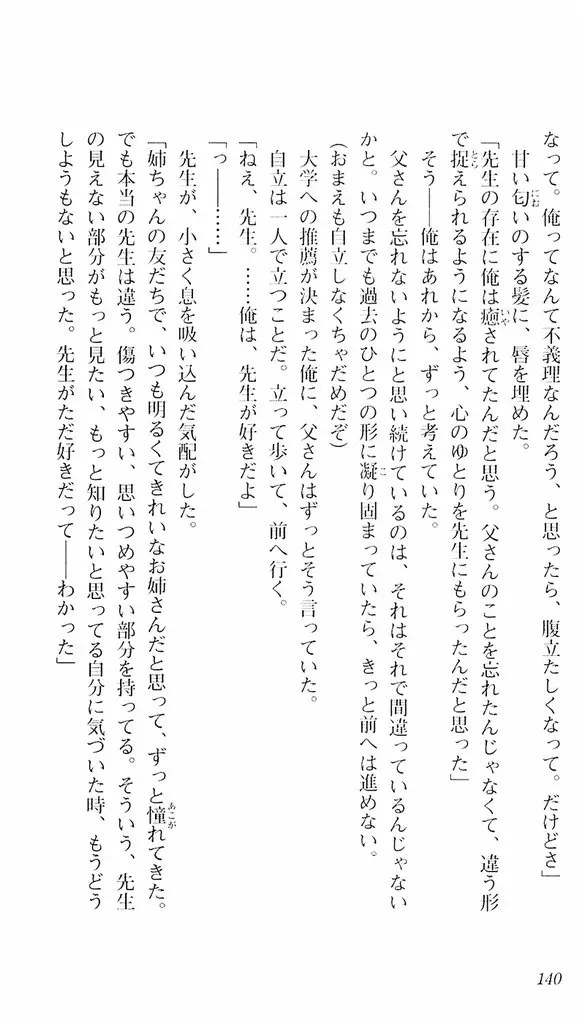 なって。俺ってなんて不義理なんだろう、と思ったら、腹立たしくなって。だけどさ」
甘い匂いのする髪に、唇を埋めた。
「先生の存在に俺は癒されてたんだと思う。父さんのことを忘れたんじゃなくて、違う形
で捉えられるようになるよう、心のゆとりを先生にもらったんだと思った」
そう――俺はあれから、ずっと考えていた。
父さんを忘れないようにと思い続けているのは、それはそれで間違っているんじゃない
かと。いつまでも過去のひとつの形に凝り固まっていたら、きっと前へは進めない。
(おまえも自立しなくちゃだめだぞ)
大学への推薦が決まった俺に、父さんはずっとそう言っていた。
自立は一人で立つことだ。立って歩いて、前へ行く。
「ねえ、先生。……俺は、先生が好きだよ」
「っ――……」
先生が、小さく息を吸い込んだ気配がした。
「姉ちゃんの友だちで、いつも明るくてきれいなお姉さんだと思って、ずっと憧れてきた。
でも本当の先生は違う。傷つきやすい、思いつめやすい部分を持ってる。そういう、先生
の見えない部分がもっと見たい、もっと知りたいと思ってる自分に気づいた時、もうどう
しようもないと思った。先生がただ好きだって――わかった」
140